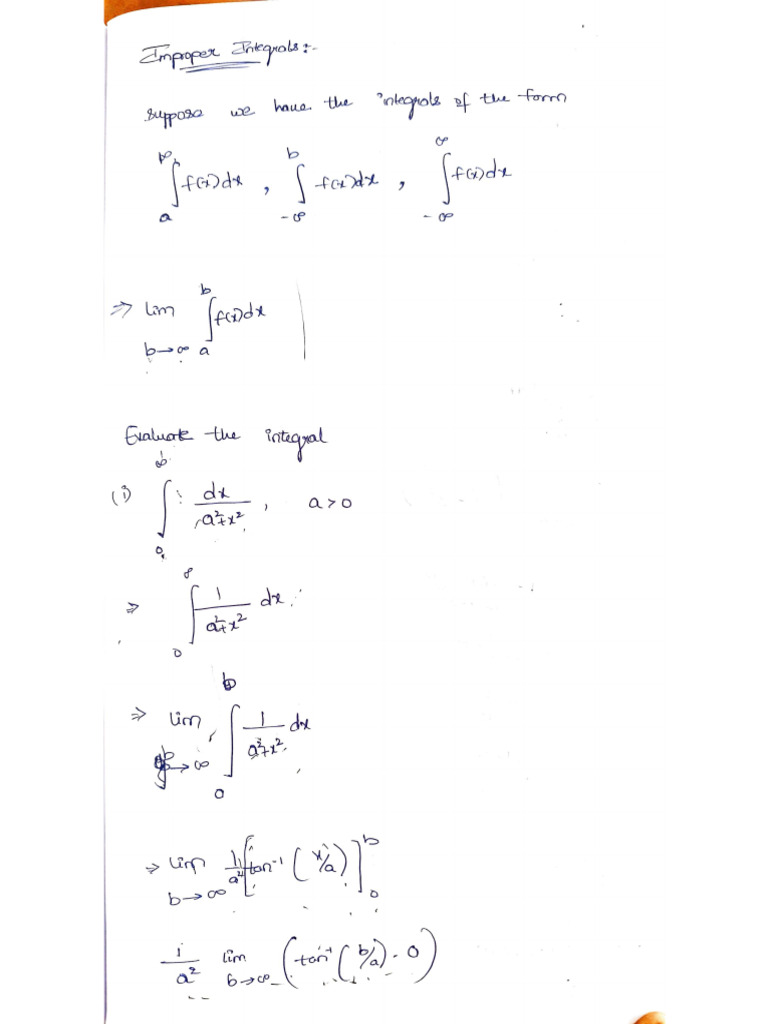 Improper Integrals:-
suppose we have the integrals of the form
∫_a^∞ f(x)dx , ∫_{-∞}^b f(x)dx , ∫_{-∞}^∞ f(x)dx
⇒ lim_{b→∞} ∫_a^b f(x)dx
Evaluate the integral
(i) ∫_0^∞ dx/(a²+x²) , a>0
⇒ ∫_0^∞ 1/(a²+x²) dx
⇒ lim_{b→∞} ∫_0^b 1/(a²+x²) dx
⇒ lim_{b→∞} 1/a² [tan⁻¹(x/a)]_0^b
1/a² lim_{b→∞} (tan⁻¹(b/a) - 0)